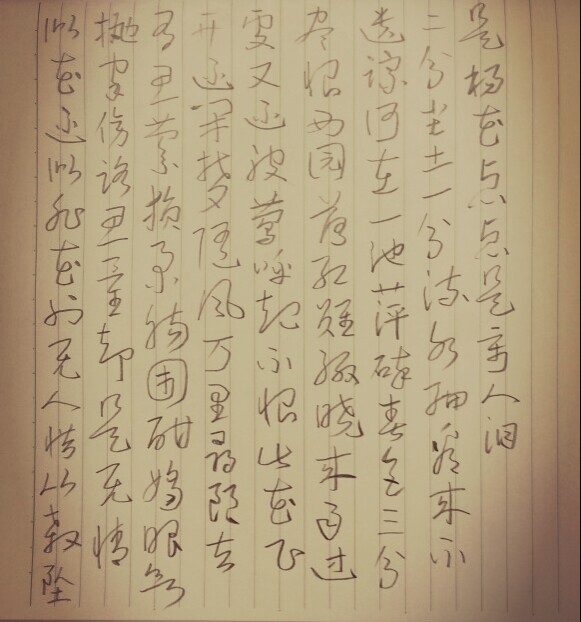 似花还似非花也无人惜从教坠
抛家傍路思量却是无情
有思萦损柔肠困酣娇眼欲
开还闭梦随风万里寻郎去
处又还被莺呼起不恨此花飞
尽恨西园落红难缀晓来雨过
遗踪何在一池萍碎春色三分
二分尘土一分流水细看来不
是杨花点点是离人泪